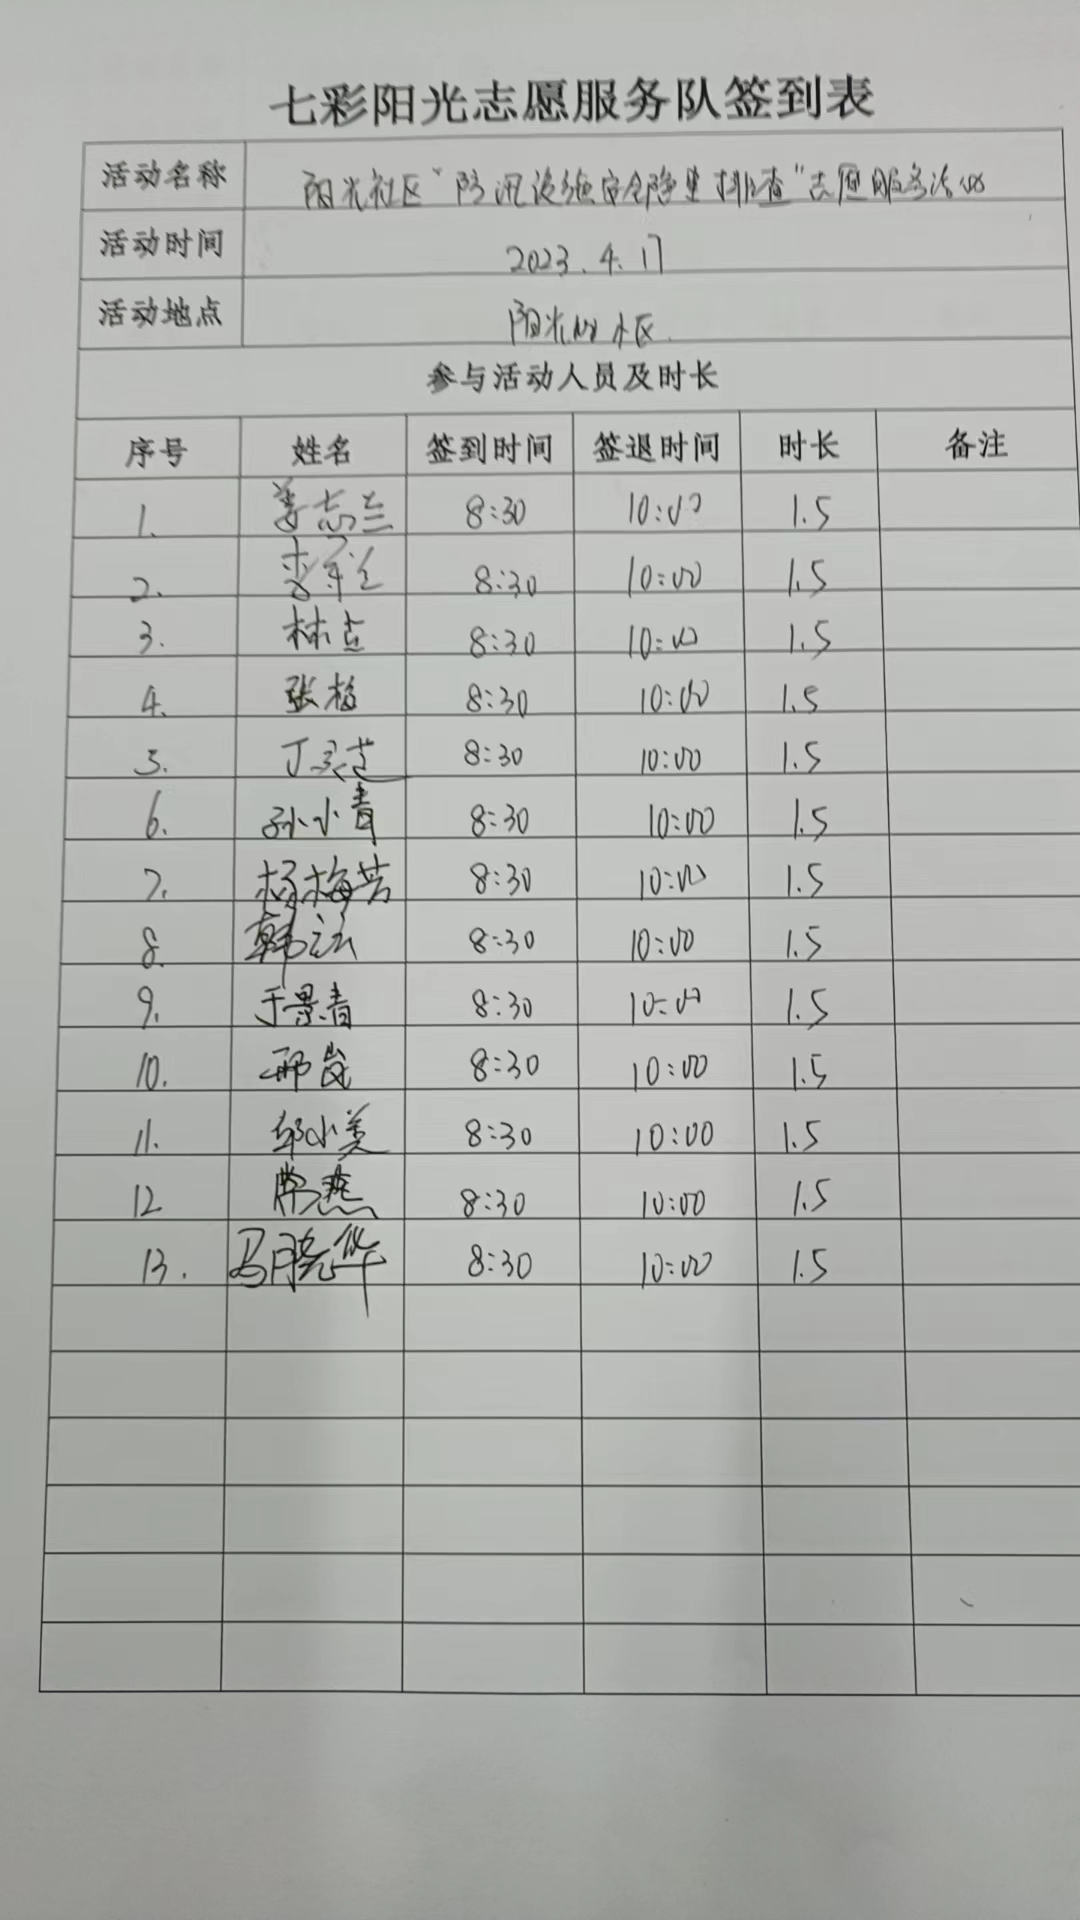 七彩阳光志愿服务队签到表
活动名称 阳光社区“防汛设施安全隐患排查”志愿服务活动
活动时间 2023.4.17
活动地点 阳光小区
参与活动人员及时长
序号 姓名 签到时间 签退时间 时长 备注
1. 姜志兰 8:30 10:00 1.5
2. 8:30 10:00 1.5
3. 林 8:30 10:00 1.5
4. 张梅 8:30 10:00 1.5
5. 丁 8:30 10:00 1.5
6. 孙小青 8:30 10:00 1.5
7. 杨梅芳 8:30 10:00 1.5
8. 韩 8:30 10:00 1.5
9. 于景青 8:30 10:00 1.5
10. 邢岚 8:30 10:00 1.5
11. 邹小美 8:30 10:00 1.5
12 常燕 8:30 10:00 1.5
13. 马晓华 8:30 10:00 1.5